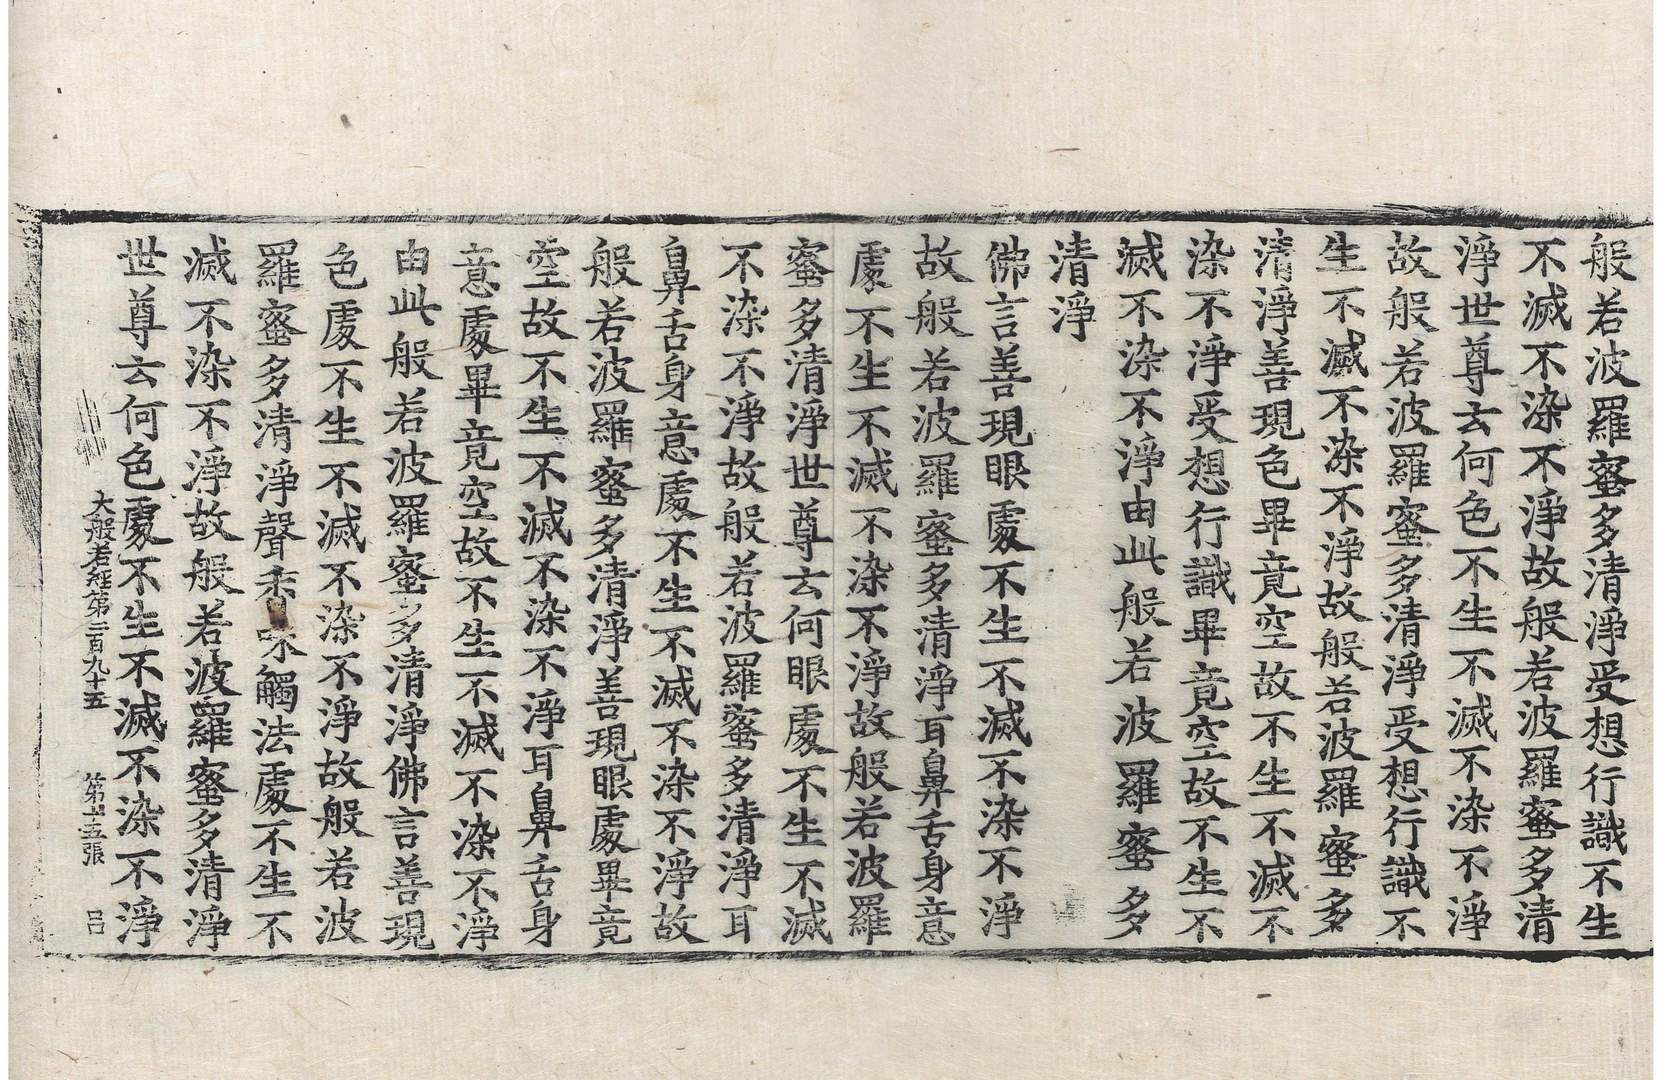 般若波羅蜜多清淨受想行識不生
不滅不染不淨故般若波羅蜜多清
淨世尊云何色不生不滅不染不淨
故般若波羅蜜多清淨受想行識不
生不滅不染不淨故般若波羅蜜多
清淨善現色畢竟空故不生不滅不
染不淨受想行識畢竟空故不生不
滅不染不淨由此般若波羅蜜多
清淨
佛言善現眼處不生不滅不染不淨
故般若波羅蜜多清淨耳鼻舌身意
處不生不滅不染不淨故般若波羅
蜜多清淨世尊云何眼處不生不滅
不染不淨故般若波羅蜜多清淨耳
鼻舌身意處不生不滅不染不淨故
般若波羅蜜多清淨善現眼處畢竟
空故不生不滅不染不淨耳鼻舌身
意處畢竟空故不生不滅不染不淨
由此般若波羅蜜多清淨佛言善現
色處不生不滅不染不淨故般若波
羅蜜多清淨聲香味觸法處不生不
滅不染不淨故般若波羅蜜多清淨
世尊云何色處不生不滅不染不淨
大般若經第二百九十五 第十五張 呂